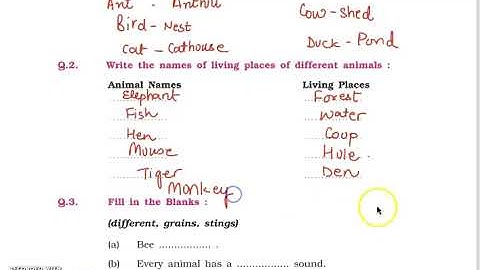 Ant - Anthill
Cow - Shed
Bird - Nest
Cat - Cathouse
Duck - Pond
Q.2. Write the names of living places of different animals :
Animal Names Living Places
Elephant Forest
Fish Water
Hen Coup
Mouse Hole.
Tiger Den
Monkey
Q.3. Fill in the Blanks :
(different, grains, stings)
(a) Bee ................ .
(b) Every animal has a ................ sound.